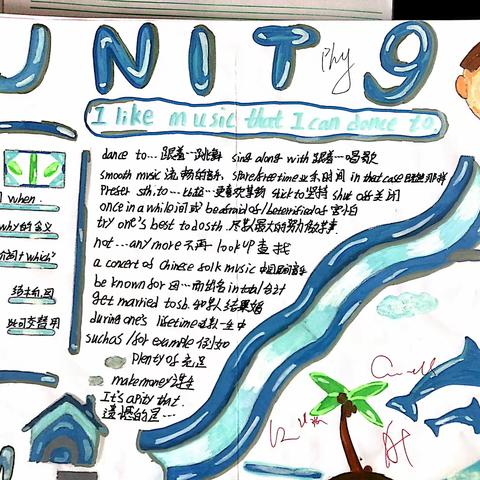 UNIT 9
Phy
I like music that I can dance to.
dance to... 跟着…跳舞 sing along with 跟着…唱歌
smooth music 流畅的音乐 spare/free time 业余时间 in that case 既然那样
Prefer sth. to... 比起…更喜欢某物 stick to 坚持 shut off 关闭
once in a while 间或 be afraid of/be terrified of 害怕
try one's best to do sth 尽某最大的努力做某事
not...any more 不再 look up 查找
a concert of Chinese folk music 中国民间音乐
be known for 因…而闻名 in total 合计
get married to sb. 和某人结婚
during one's lifetime 在某人一生中
such as/for example 例如
Plenty of 充足
make money 挣钱
It's a pity that
遗憾的是…
when.
why 的含义
which"
此可交替用